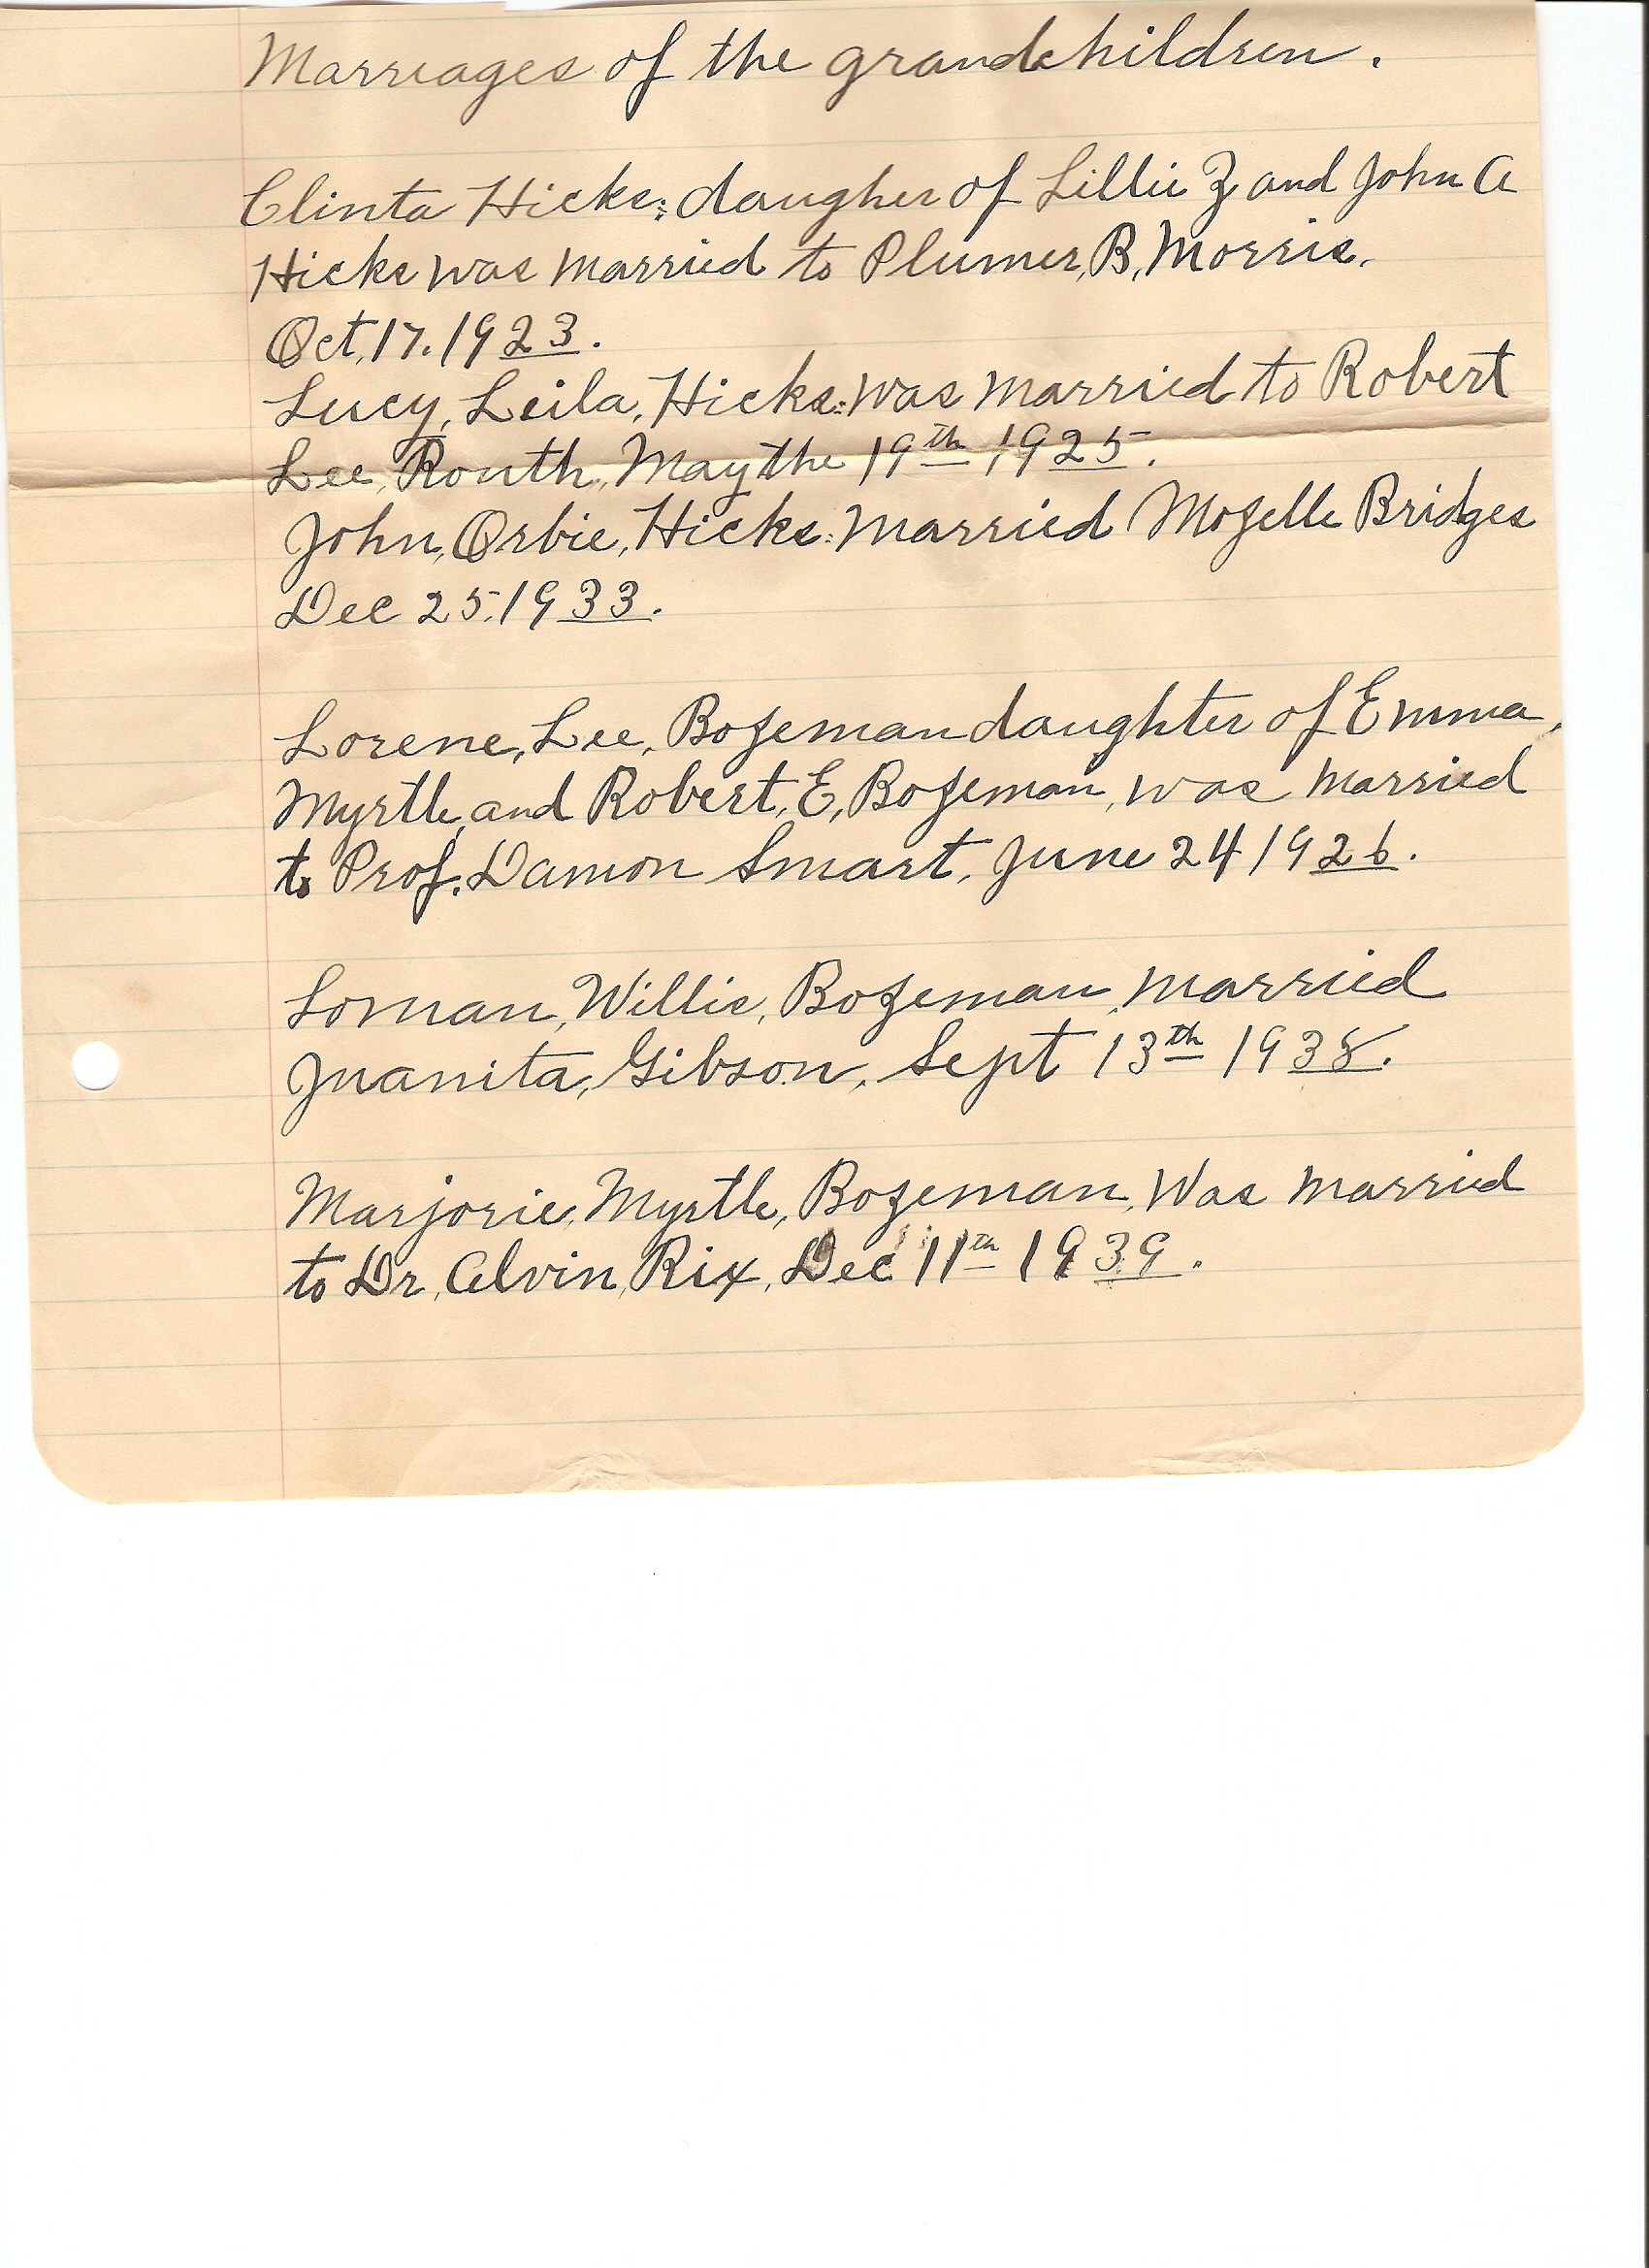 Marriages of the grandchildren.
Clinta Hicks: daugher of Lillie Z and John A
Hicks was married to Plumer, B, Morris.
Oct, 17. 1923.
Lucy, Leila, Hicks: was married to Robert
Lee, Routh, May the 19th 1925.
John, Orbie, Hicks: married Mozelle Bridges
Dec 25, 1933.
Lorene, Lee, Bozeman daughter of Emma,
Myrtle, and Robert, E, Bozeman, was married
to Prof. Damon Smart, June 24 1926.
Loman, Willie, Bozeman, married
Juanita, Gibson, Sept 13th 1938.
Marjorie, Myrtle, Bozeman, was married
to Dr, Alvin, Rix, Dec 11th 1939.